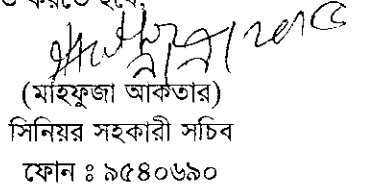 করতে হবে,
(মাহফুজা আকতার)
সিনিয়র সহকারী সচিব
ফোন ঃ ৯৫৪০৬৯০